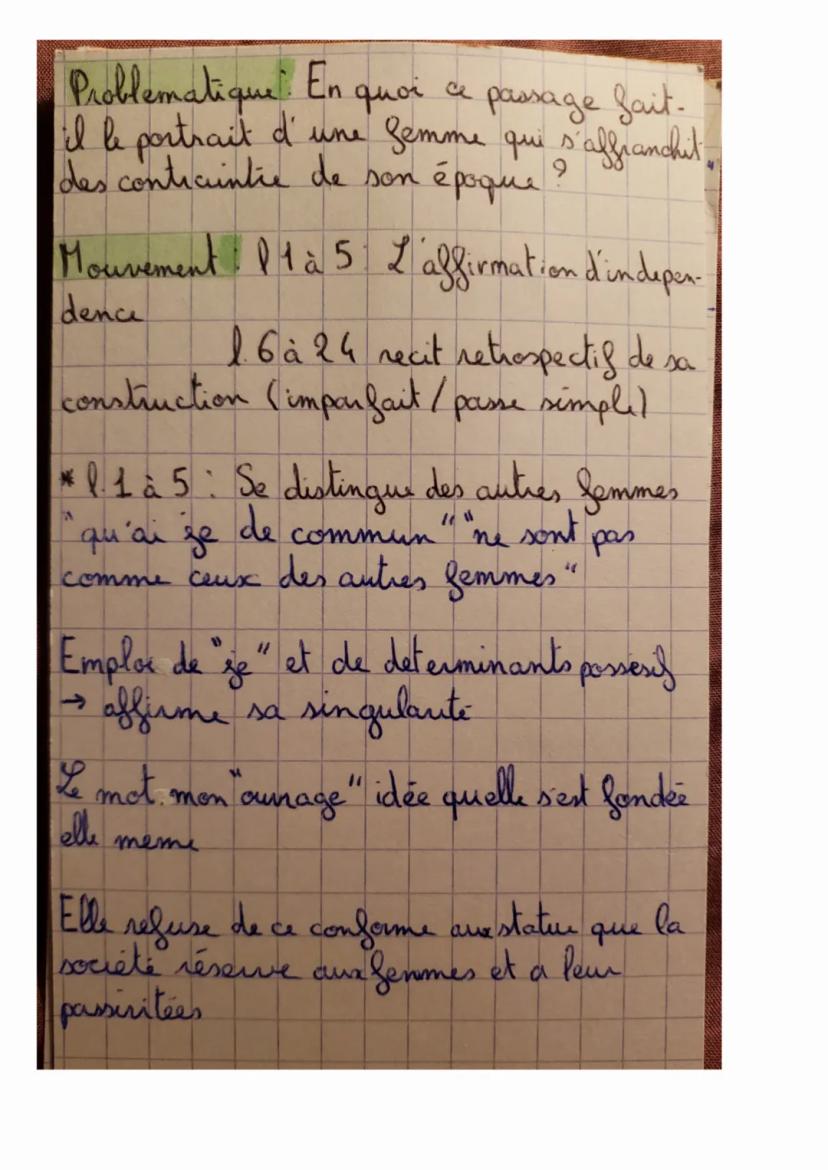 Problematique : En quoi ce passage fait-
il le portrait d'une femme qui s'affranchit
des contraintie de son époque ?
Mouvement : l 1 à 5 : L'affirmation d'indepen-
dence
l. 6 à 24 recit retrospectif de sa
construction (imparfait / passe simple)
* l. 1 à 5 : Se distingue des autres femmes
"qu'ai je de commun" "ne sont pas
comme ceux des autres femmes"
Emploi de "je" et de determinants possesif
→ affirme sa singularité
Le mot mon "ouvrage" idée quelle s'est fondée
elle meme
Elle refuse de ce conforme aux statue que la
société réserve aux femmes et a leur
passivitées